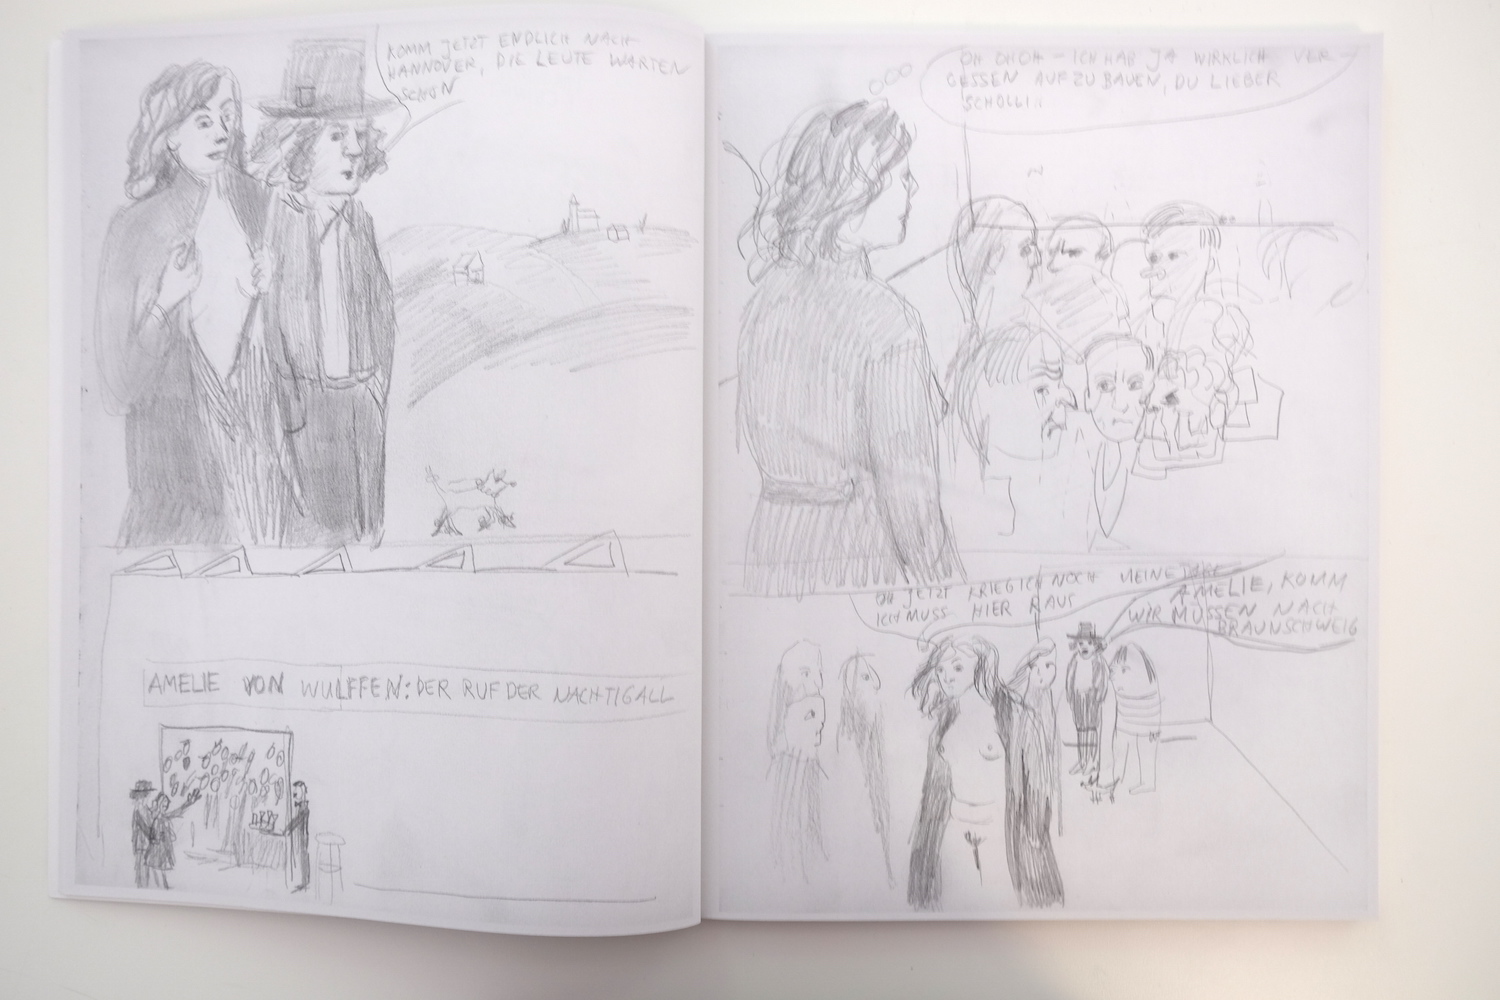 KOMM JETZT ENDLICH NACH
HANNOVER, DIE LEUTE WARTEN
SCHON
AMELIE VON WULFFEN: DER RUF DER NACHTIGALL
OH OHOH – ICH HAB JA WIRKLICH VER-
GESSEN AUFZUBAUEN, DU LIEBER
SCHOLLI!!
OH JETZT KRIEG ICH NOCH MEINE TAGE
ICH MUSS HIER RAUS
AMELIE, KOMM
WIR MÜSSEN NACH
BRAUNSCHWEIG